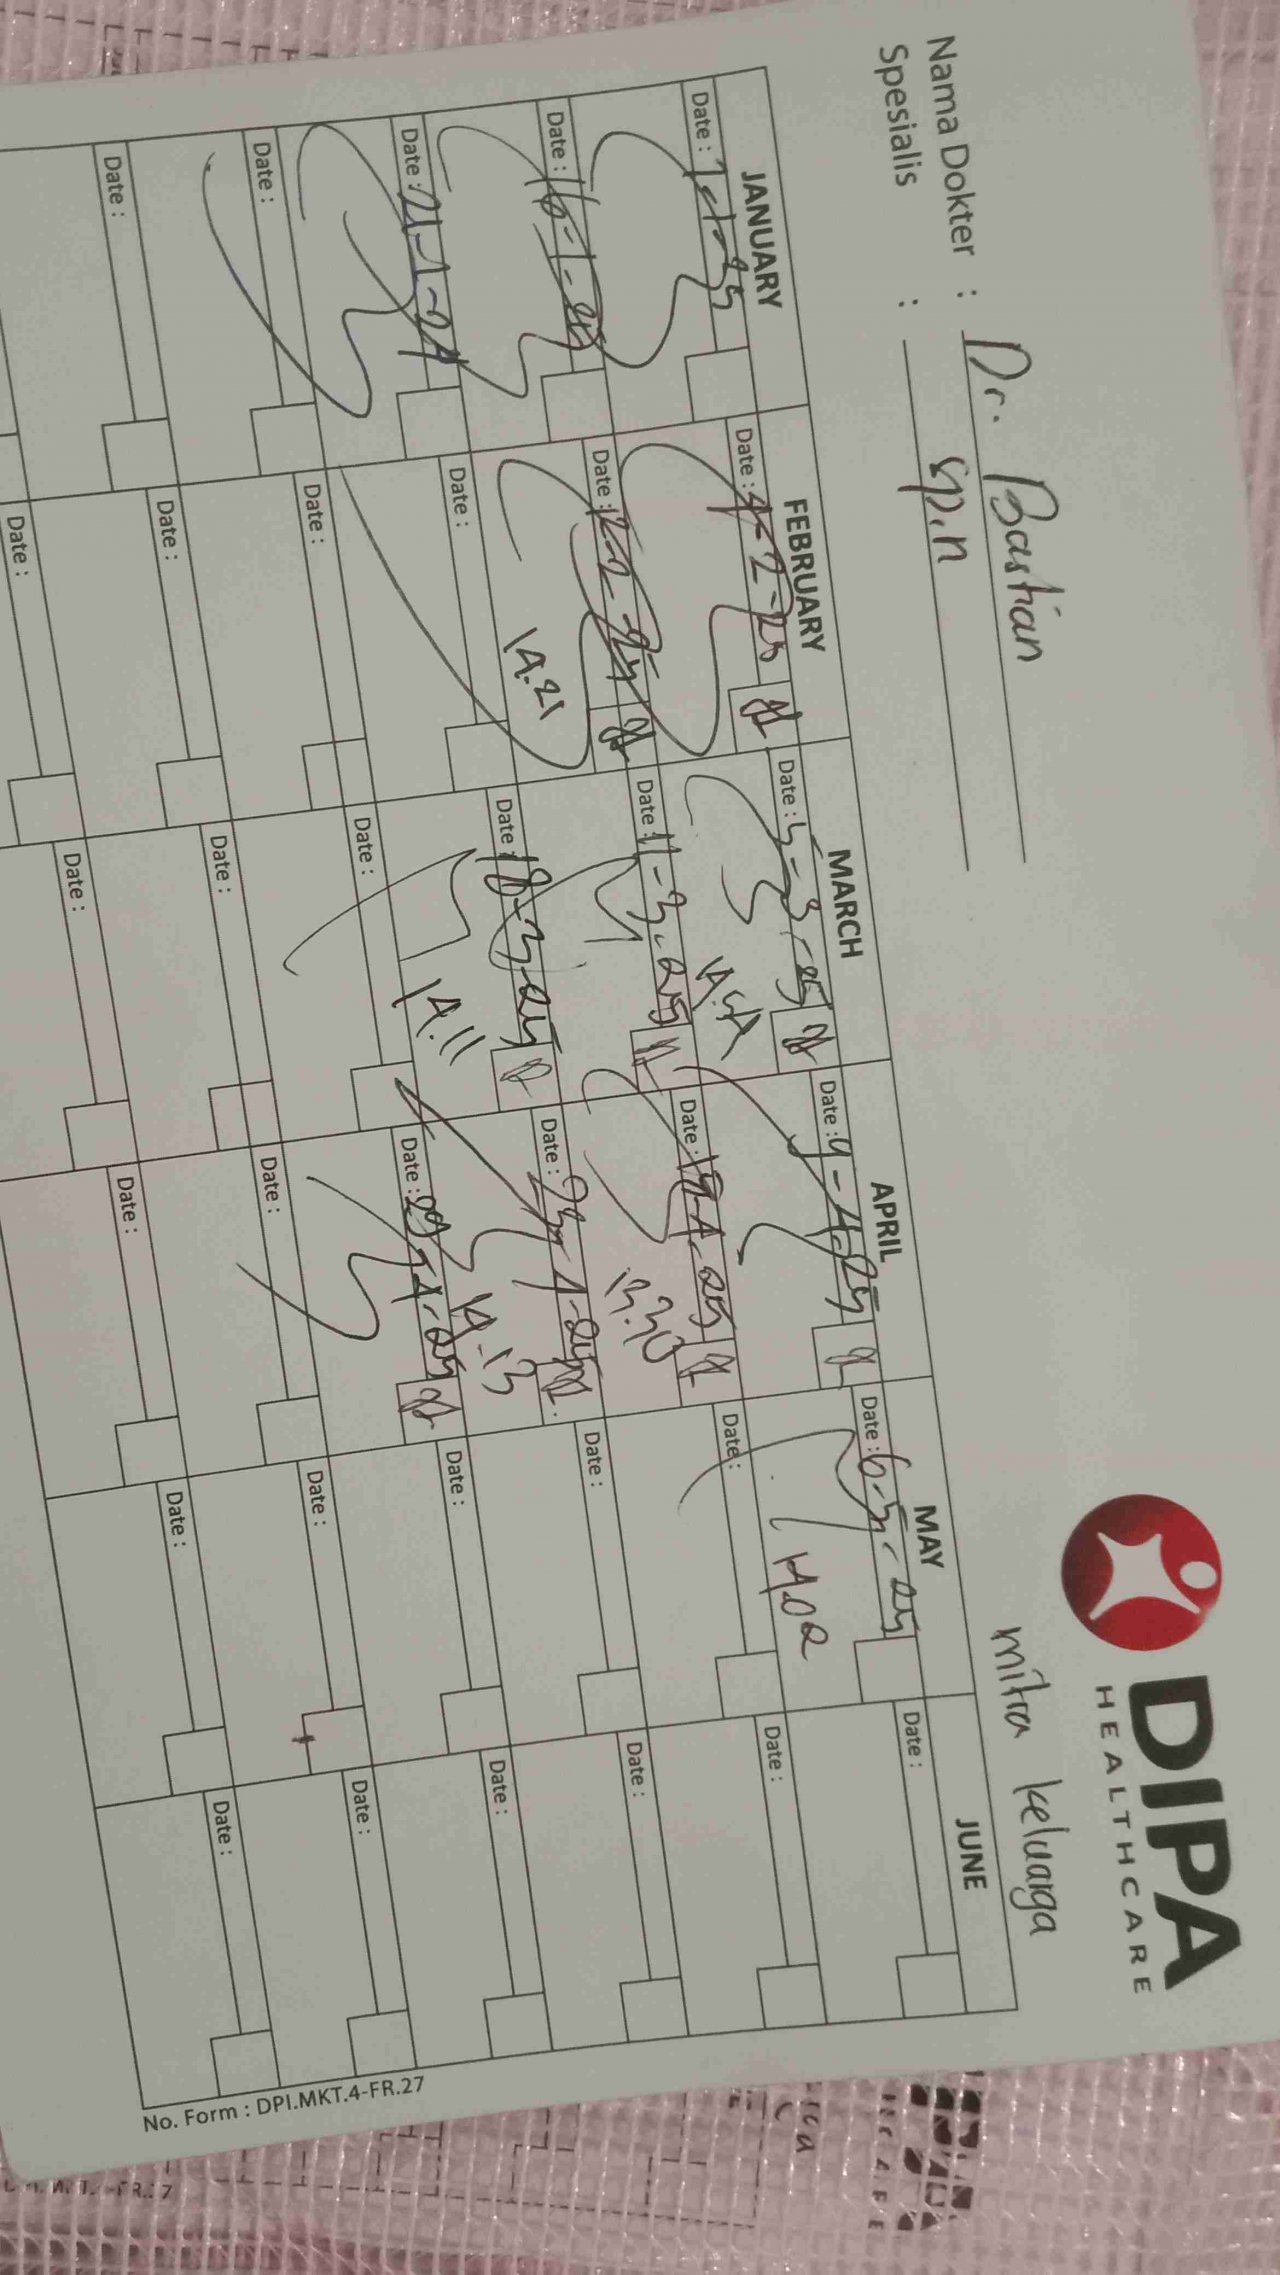 DIPA
HEALTHCARE
mitra keluarga
Nama Dokter : Dr. Bastian
Spesialis : Sp.n
JANUARY FEBRUARY MARCH APRIL MAY JUNE
Date : 7-1-25 Date : 4-2-25 Date : 5-3-25 Date : 9-4-25 Date : 6-5-25 Date :
14.02
Date : 16-1-25 Date : 12-2-25 Date : 11-3-25 Date : 19-4-25 Date : Date :
14.21 13.30
Date : 21-1-25 Date : Date : 18-3-25 Date : 23-4-25 Date : Date :
14.11 14.13
Date : Date : Date : Date : 29-4-25 Date : Date :
Date : Date : Date : Date : Date : Date :
Date : Date : Date : Date : Date :
No. Form : DPI.MKT.4-FR.27